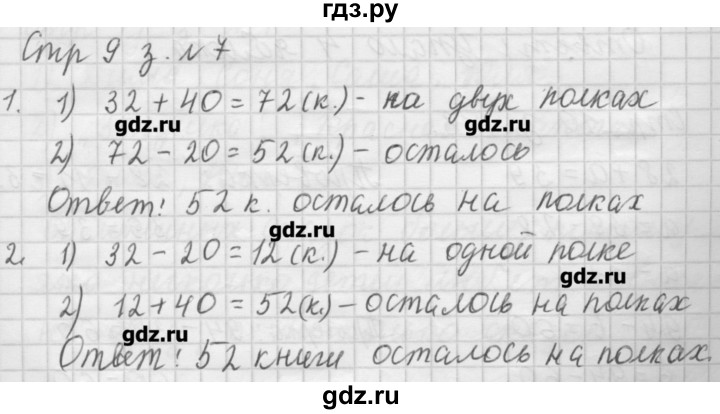 гдз.ру
Стр 9 з. № 7
1. 1) 32 + 40 = 72 (к.) - на двух полках
gdz.ru gdz.ru
2) 72 - 20 = 52 (к.) - осталось
Ответ! 52 к. осталось на полках
gdz.ru
2. 1) 32 - 20 = 12 (к.) - на одной полке
gdz.ru
2) 12 + 40 = 52 (к.) - осталось на полках
gdz.ru
Ответ! 52 книги осталось на полках.
gdz.ru